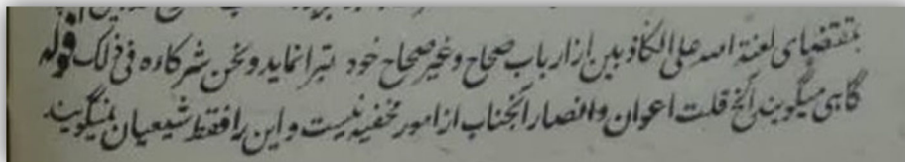 بمقتضای لعنة الله علی الکاذبین از ارباب صحاح و غیر صحاح خود تبرا نماید و نحن شرکاءه فی ذلک قوله
گاهی میگویند الخ قلت اعوان و انصار آنجناب از امور مخفیه نیست و این را فقط شیعیان نمیگویند